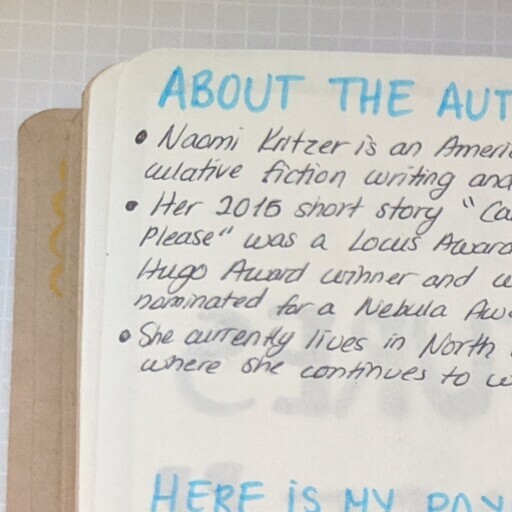 ABOUT THE AUT
• Naomi Kritzer is an Ameri
culative fiction writing and
• Her 2015 short story "Ca
Please" was a Locus Award
Hugo Award winner and w
nominated for a Nebula Aw
• She currently lives in North
where she continues to w
HERE IS MY PAY